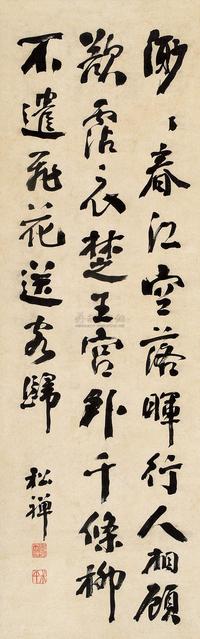 渺〻春江空落暉行人相顧
欲霑衣楚王宮外千條柳
不遣飛花送客歸
松禪